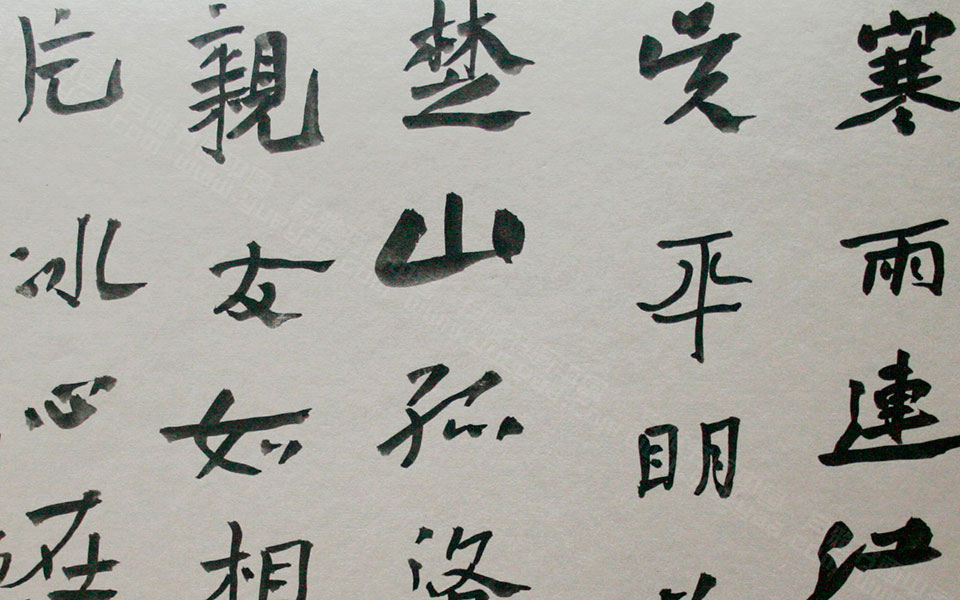 寒雨連江
吳平明
楚山孤洛
親友如相
片冰心在